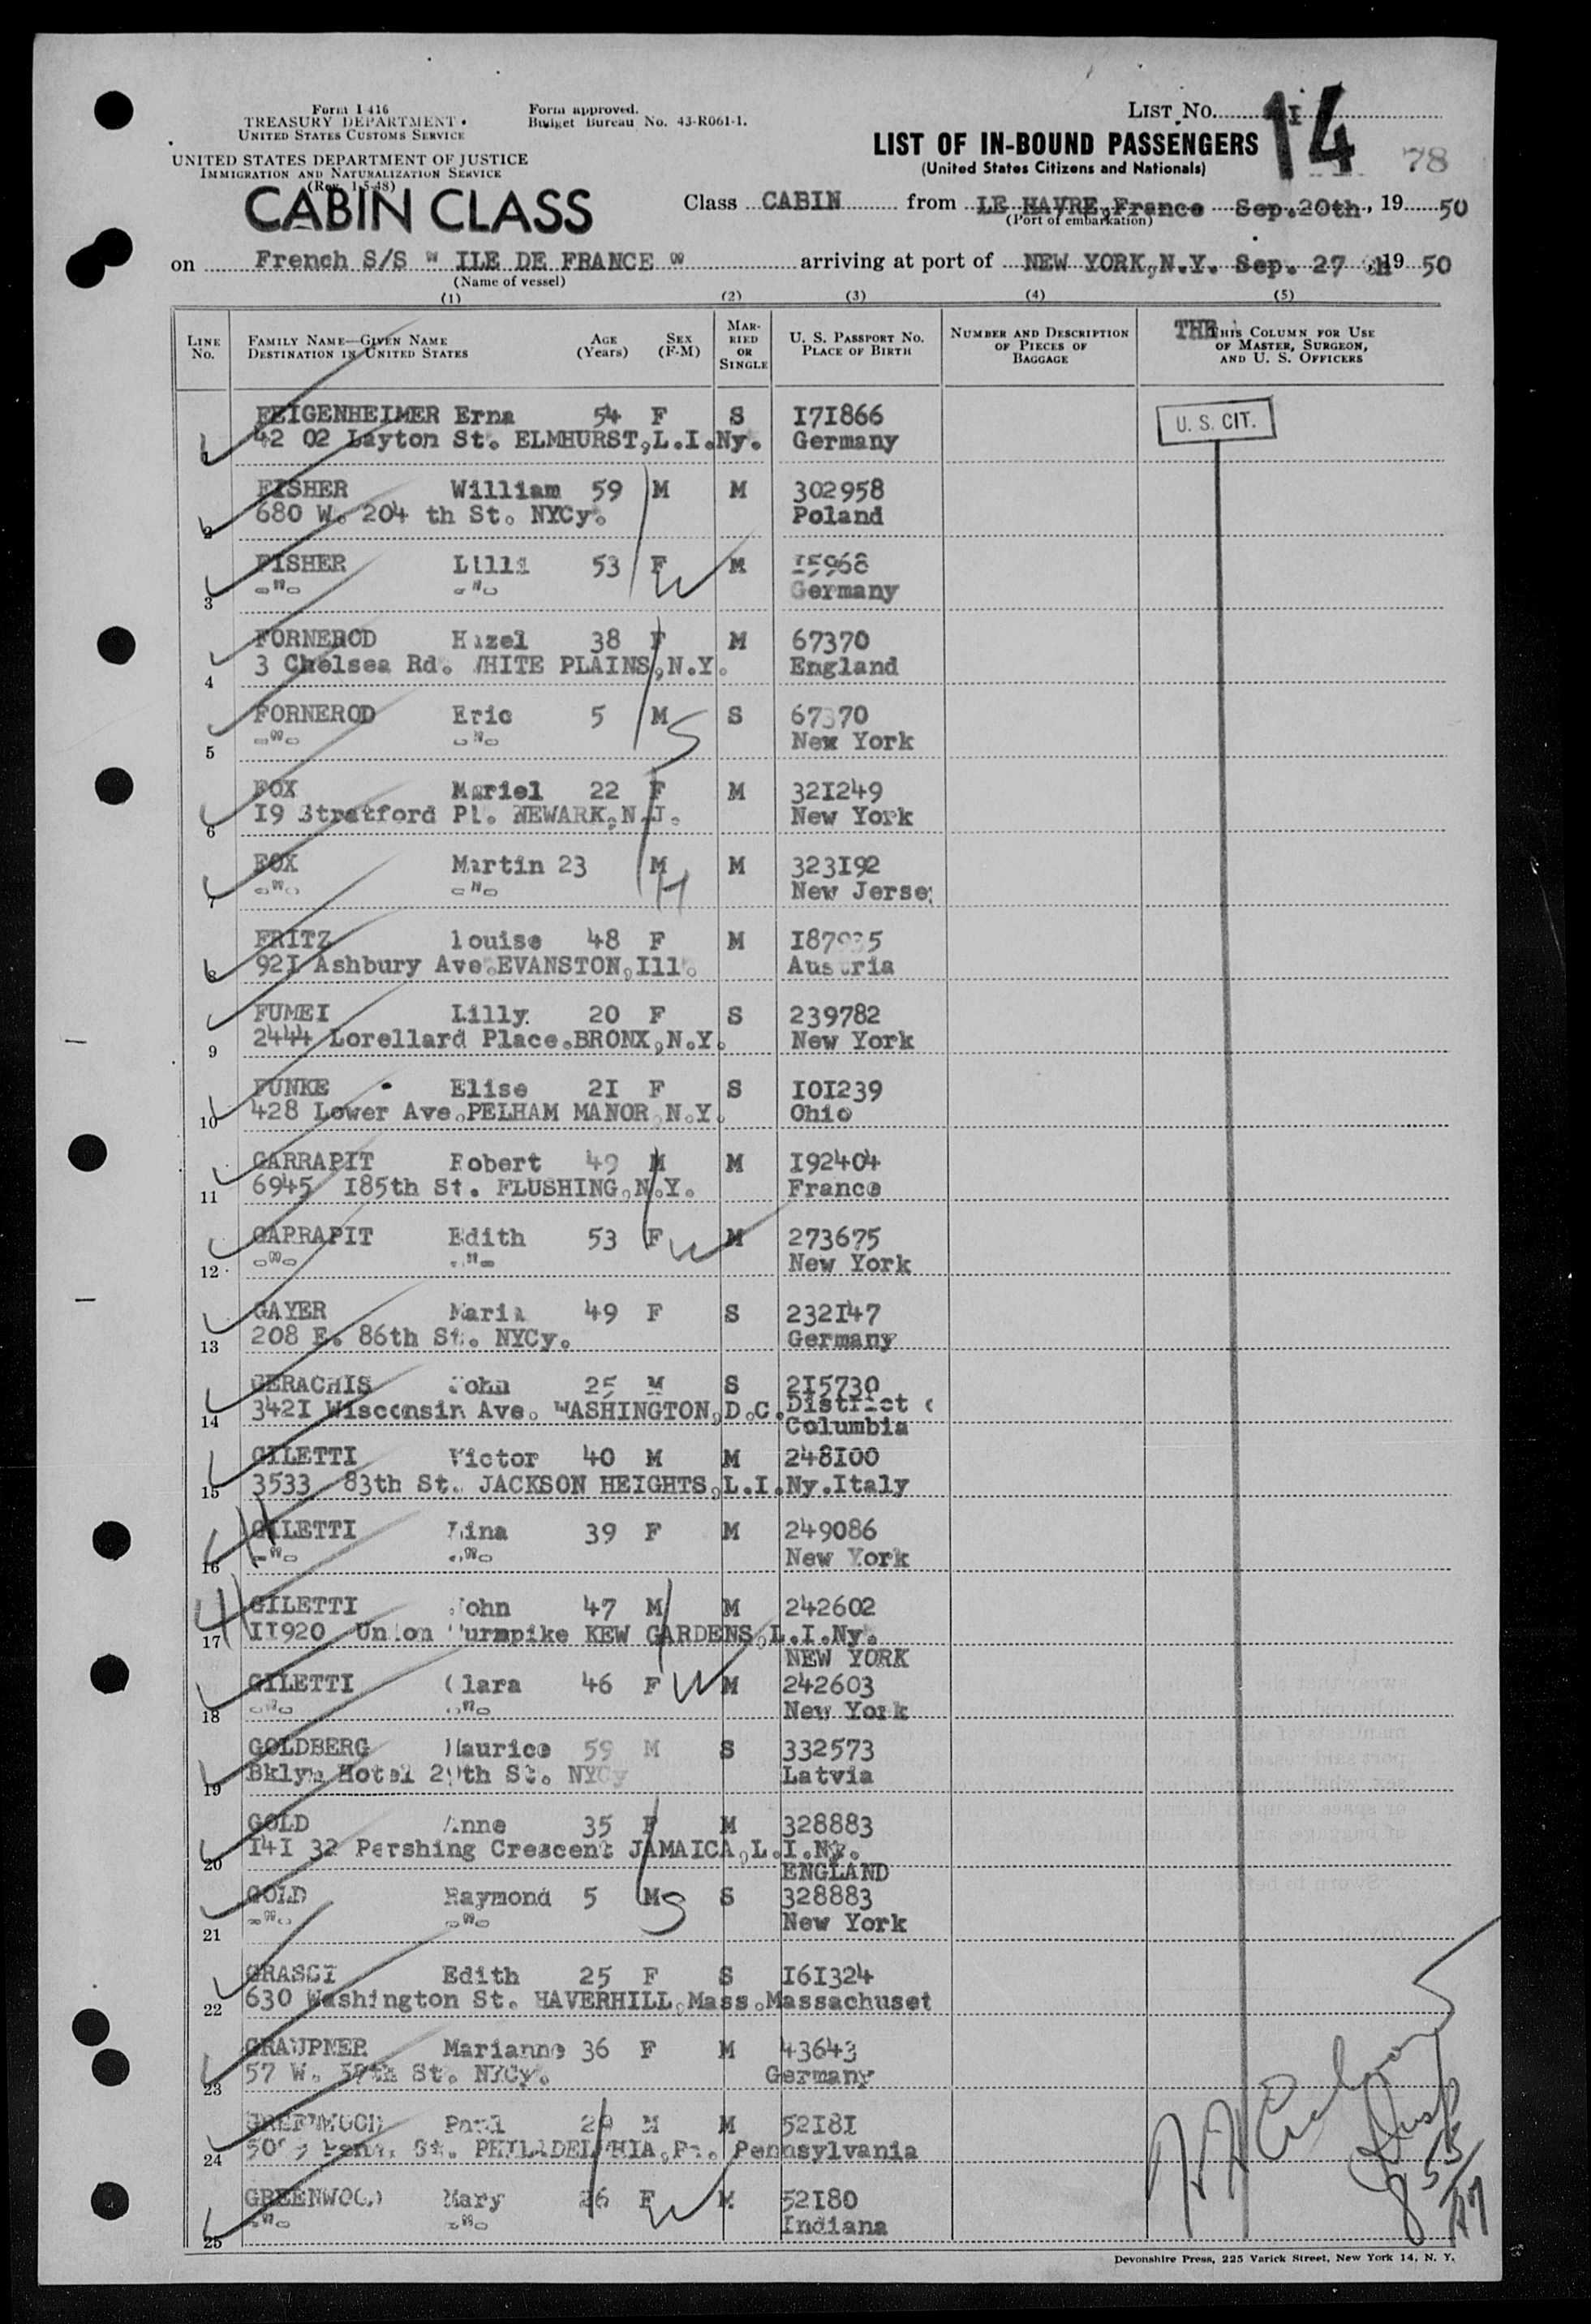 Form I 416
TREASURY DEPARTMENT
UNITED STATES CUSTOMS SERVICE
UNITED STATES DEPARTMENT OF JUSTICE
IMMIGRATION AND NATURALIZATION SERVICE
(Rev. 1-5-48)
Form approved.
Budget Bureau No. 43-R061-1.
LIST NO. 14
LIST OF IN-BOUND PASSENGERS
(United States Citizens and Nationals)
78
CABIN CLASS
Class CABIN from LE HAVRE,France Sep.20th, 19 50
(Port of embarkation)
on French S/S " ILE DE FRANCE " arriving at port of NEW YORK,N.Y. Sep. 27 th 19 50
(Name of vessel)
(1) (2) (3) (4) (5)
LINE No.
FAMILY NAME—GIVEN NAME
DESTINATION IN UNITED STATES
AGE (Years)
SEX (F-M)
MARRIED OR SINGLE
U. S. PASSPORT NO.
PLACE OF BIRTH
NUMBER AND DESCRIPTION OF PIECES OF BAGGAGE
THIS COLUMN FOR USE OF MASTER, SURGEON, AND U. S. OFFICERS
U. S. CIT.
FEIGENHEIMER Erna 54 F S I7I866
1 42 02 Layton St. ELMHURST,L.I.Ny. Germany
FISHER William 59 M M 302958
2 680 W. 204 th St. NYCy. Poland
FISHER Lilli 53 F W M I5968
3 -"- -"- Germany
FORNEROD Hazel 38 F M 67370
4 3 Chelsea Rd. WHITE PLAINS,N.Y. England
FORNEROD Eric 5 M S S 67370
5 -"- -"- New York
FOX Mariel 22 F M 32I249
6 I9 Stratford Pl. NEWARK,N.J. New York
FOX Martin 23 M H M 323I92
7 -"- -"- New Jersey
FRITZ Louise 48 F M
8 92I Ashbury Ave.EVANSTON,Ill. Austria
FUMEI Lilly 20 F S 239782
9 2444 Lorellard Place.BRONX,N.Y. New York
FUNKE Elise 2I F S I0I239
10 428 Lower Ave.PELHAM MANOR,N.Y. Ohio
GARRAPIT Robert 49 M M I92404
11 6945 I85th St. FLUSHING,N.Y. France
GARRAPIT Edith 53 F W M 273675
12 -"- -"- New York
GAYER Maria 49 F S 232I47
13 208 E. 86th St. NYCy. Germany
GERACHIS John 25 M S 2I5730
14 342I Wisconsin Ave. WASHINGTON,D.C. District
Columbia
GILETTI Victor 40 M M 248I00
15 3533 83th St. JACKSON HEIGHTS,L.I.Ny.Italy
GILETTI 39 F M 249086
16 -"- -"- New York
GILETTI John 47 M M 242602
17 II920 Union Turnpike KEW GARDENS,L.I.Ny.
NEW YORK
GILETTI Clara 46 F W M 242603
18 -"- -"- New York
GOLDBERG Maurice 59 M S 332573
19 Bklyn Hotel St. NYCy Latvia
GOLD Anne 35 F M 328883
20 I4I 32 Pershing Crescent JAMAICA,L.I.Ny.
ENGLAND
GOLD Raymond 5 M S S 328883
21 -"- -"- New York
GRASCI Edith 25 F S I6I324
22 630 Washington St. HAVERHILL,Mass.Massachuset
GRAUPNER Marianne 36 F M 43643
23 57 W. St. NYCy. Germany
GREENWOOD Paul 29 M M 52I8I
24 St. PHILADELPHIA,Pa. Pennsylvania
GREENWOOD Mary 26 F W M 52I80
25 -"- -"- Indiana
Devonshire Press, 225 Varick Street, New York 14, N. Y.